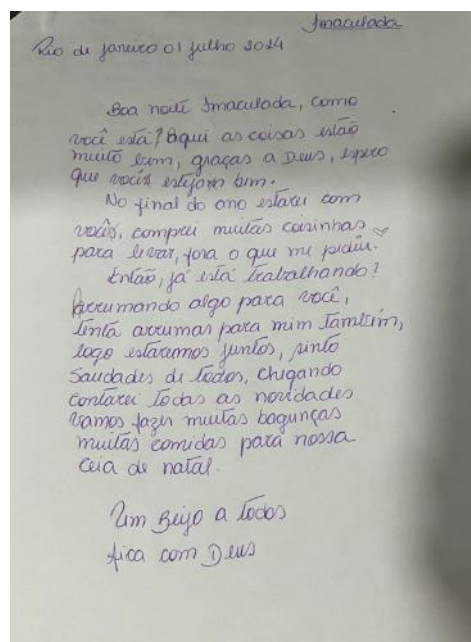 Imaculada
Rio de janeiro 01 julho 2024
Boa noite Imaculada, como
você está? Aqui as coisas estão
muito bem, graças a Deus, espero
que vocês estejam bem.
No final do ano estarei com
vocês, comprei muitas coisinhas
para levar, fora o que me pediu.
Então, já está trabalhando?
Arrumando algo para você,
tenta arrumar para mim também,
logo estaremos juntos, sinto
Saudades de todos, chegando
contarei todas as novidades
vamos fazer muitas bagunças
muitas comidas para nossa
ceia de natal.
Um Beijo a todos
fica com Deus